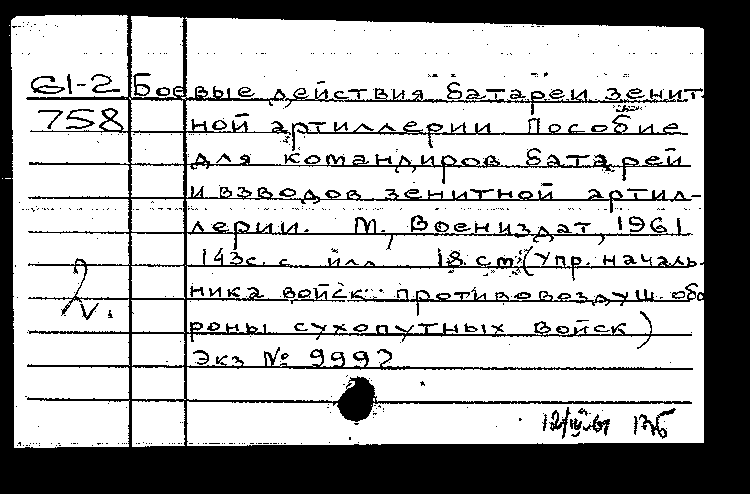 61-2 Боевые действия батареи зенит-
758 ной артиллерии Пособие
для командиров батарей
и взводов зенитной артил-
лерии. М., Воениздат, 1961
143с. с илл 18 см (Упр. началь-
ника войск противовоздуш. обо
роны сухопутных войск)
2.
Экз № 9992